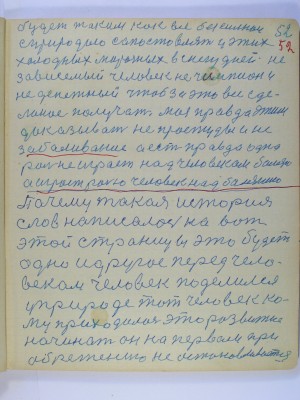 будет таким как вы безсилной 52
с природою сопоставят у этих 52
холодных морозных в снегу дней. не
зависемый человек не читион и
не денежный чтоб за это все сде-
ланое получат. моя правда этим
доказыват не простуды и не
заболивание а ест правда одна
роз не играет над человеком болезн
а играт рою человек над балезню
Почему такая история
слов написалос на вот
этой странице это будет
одно и другое перед чело-
векам человек поделился
у природе тот человек ко-
му приходилос это розвитие
начинат он на первом при
обретению не остановливается